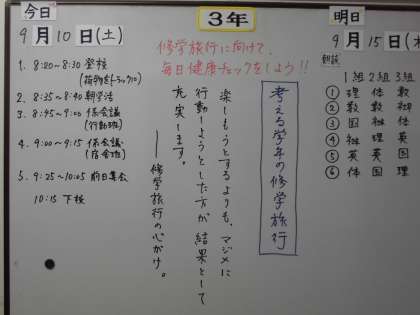 今日
9月10日(土)
1. 8:20~8:30 登校
(荷物をトラックに)
2. 8:35~8:40 朝学活
3. 8:45~9:00 係会議
(行動班)
4. 9:00~9:15 係会議
(宿舎班)
5. 9:25~10:05 前日集会
10:15 下校
3年
修学旅行に向けて、
毎日健康チェックをしよう!!
考える学年の修学旅行
楽しもうとするよりも、マジメに
行動しようとした方が結果として
充実します。
──修学旅行の心がけ。
明日
9月15日(木
朝読
1組 2組 3組
① 理 体 数
② 数 数
③ 国 社 体
④ 社 理 英
⑤ 英 英 国
⑥ 体 国 理